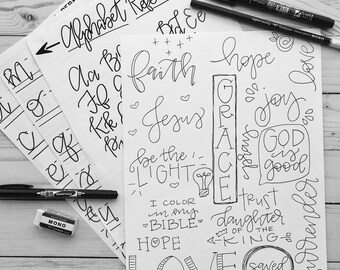 Alphabet
Aa Bb
faith
hope
love
GRACE
joy
Jesus
pray
GOD
is
good
be the
LIGHT
trust
I COLOR
in my
BIBLE
daughter
OF THE
KING
surrender
HOPE
LOVE
saved
MONO